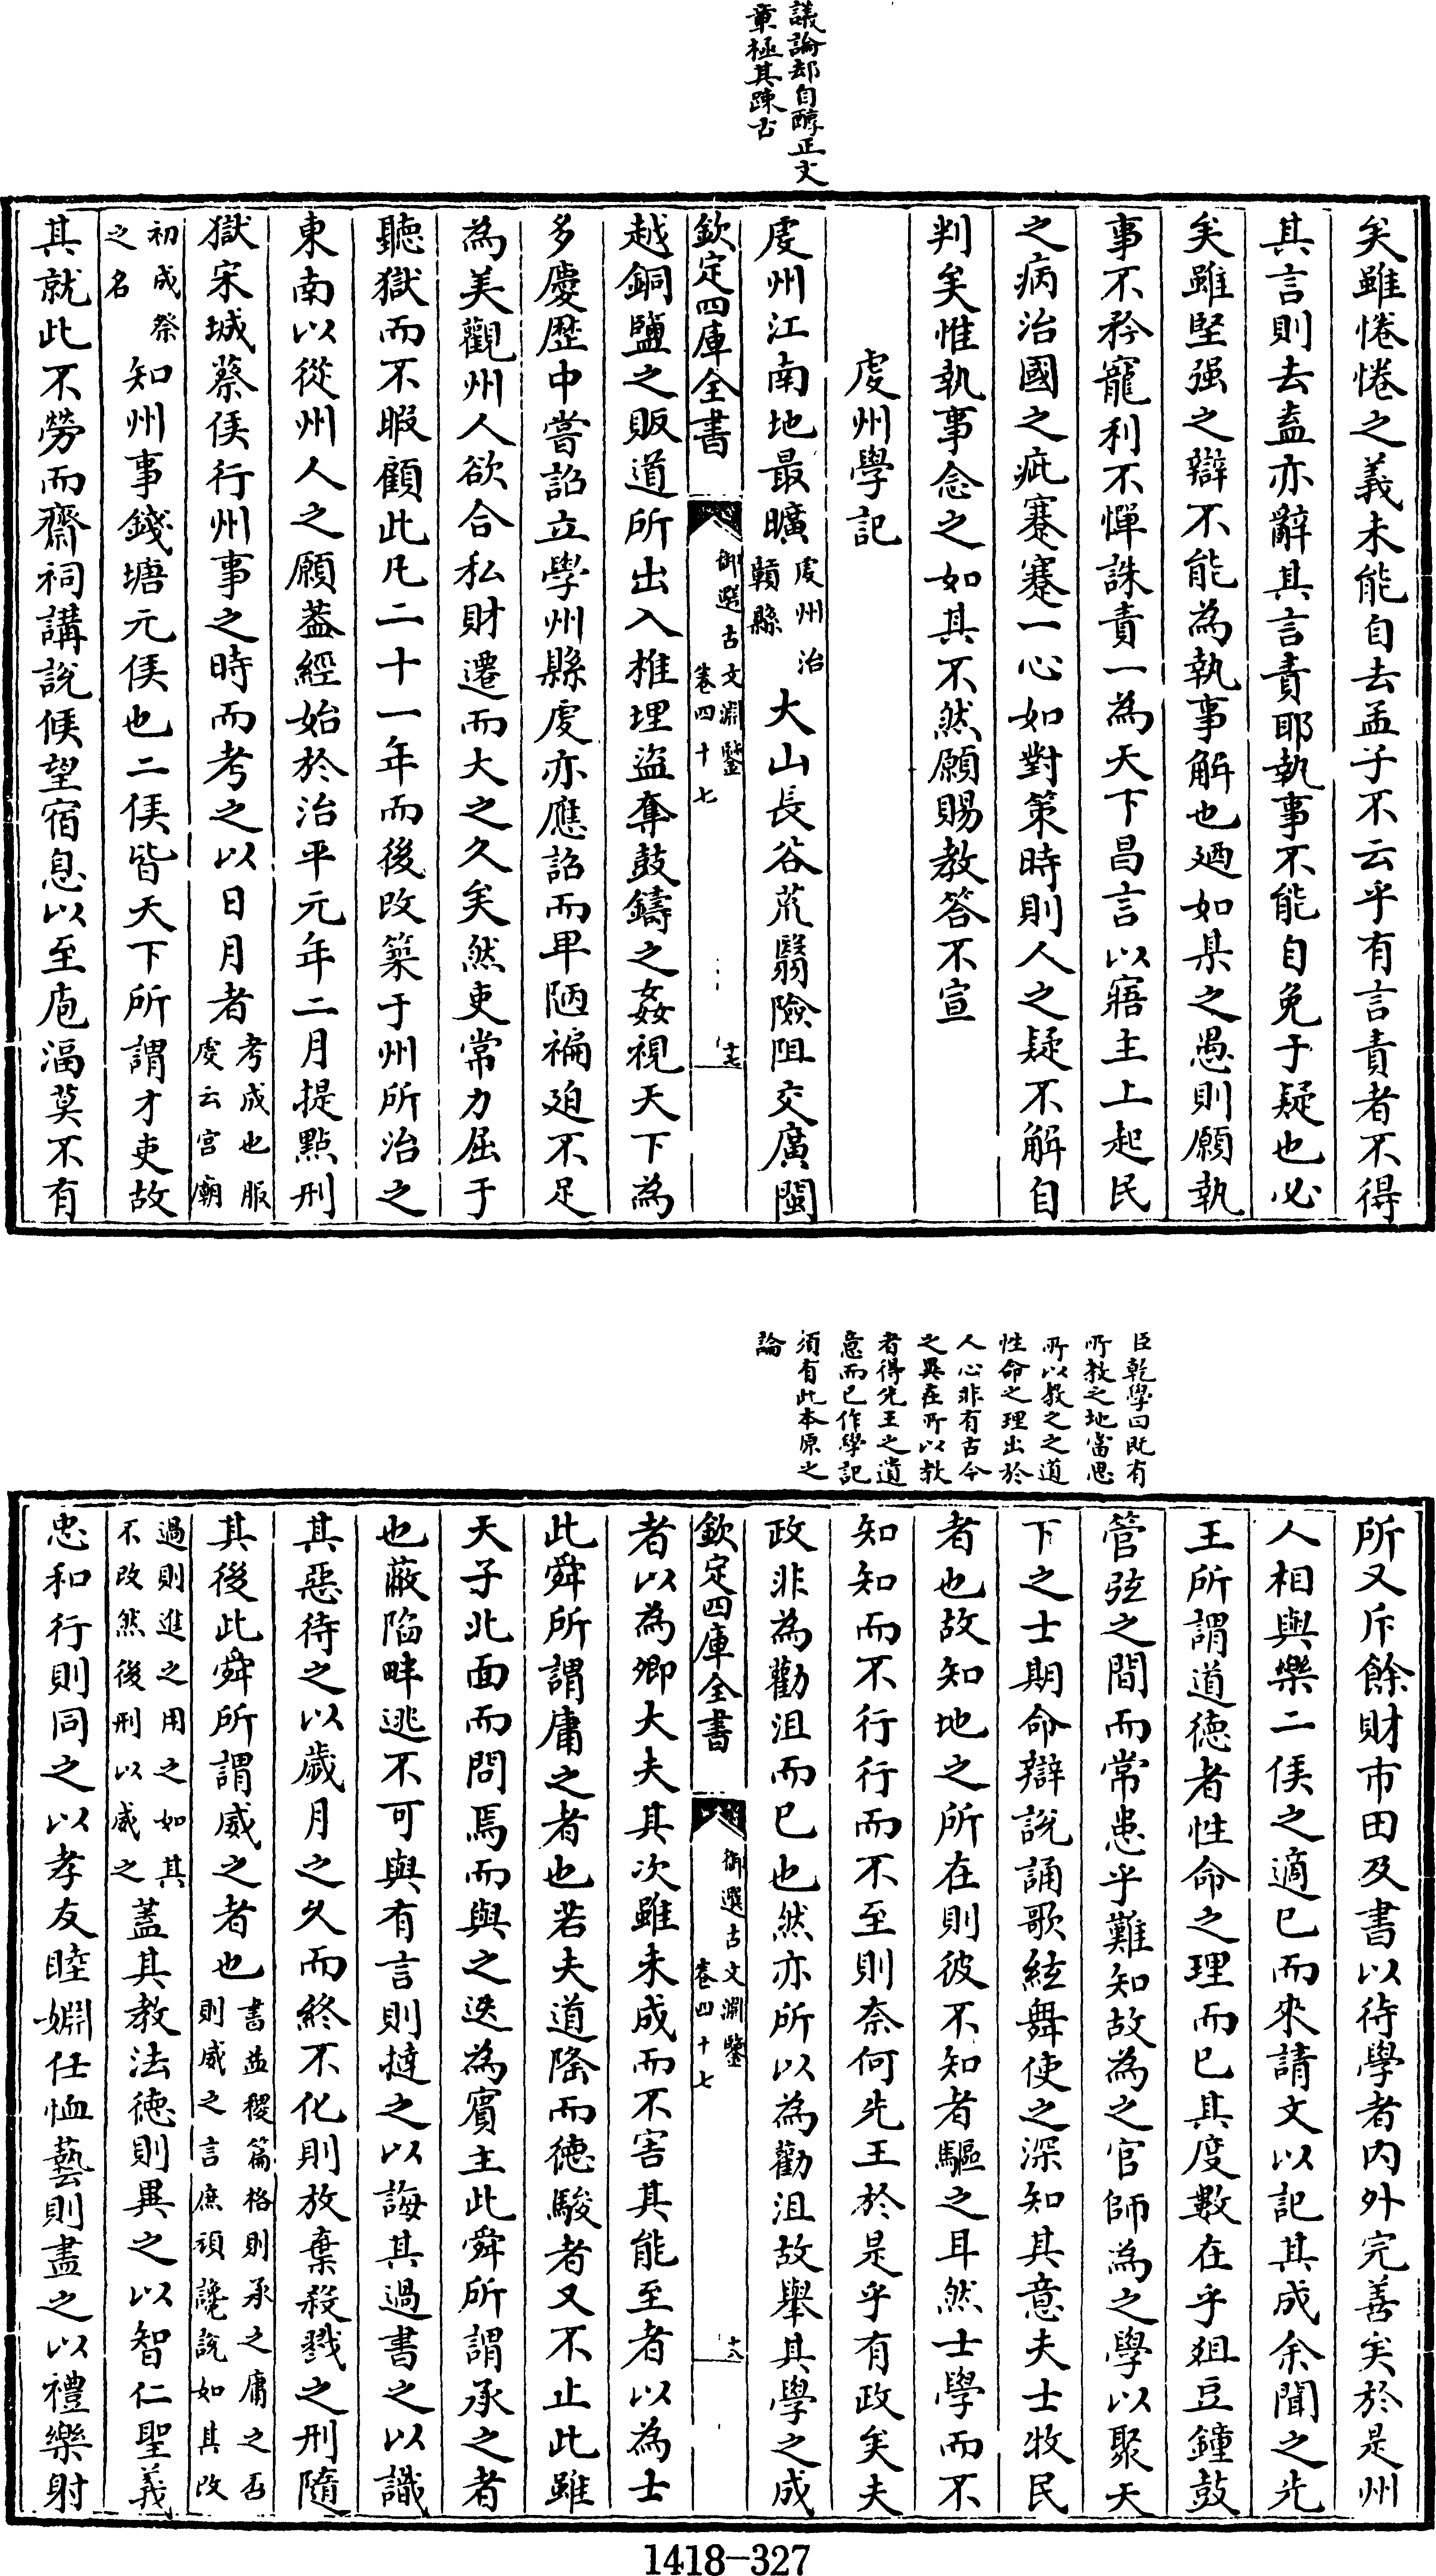 議論却自醇正文
章極其踈古
矣雖惓惓之義未能自去孟子不云乎有言責者不得
其言則去盍亦辭其言責耶執事不能自免于疑也必
矣雖堅强之辯不能為執事解也廼如某之愚則願執
事不矜寵利不憚誅責一為天下昌言以寤主上起民
之病治國之疵蹇蹇一心如對策時則人之疑不解自
判矣惟執事念之如其不然願賜教答不宣
虔州學記
虔州江南地最曠虔州治贛縣大山長谷荒翳險阻交廣閩
欽定四庫全書 御選古文淵鑒 卷四十七 十七
越銅鹽之販道所出入椎埋盜奪鼓鑄之姦視天下為
多慶歷中嘗詔立學州縣虔亦應詔而卑陋褊迫不足
為美觀州人欲合私財遷而大之久矣然吏常力屈于
聽獄而不暇顧此凡二十一年而後改築于州所治之
東南以從州人之願葢經始於治平元年二月提點刑
獄宋城蔡侯行州事之時而考之以日月者考成也服虔云宫廟
初成祭之名知州事錢塘元侯也二侯皆天下所謂才吏故
其就此不勞而齋祠講說候望宿息以至庖湢莫不有
臣乾學曰既有
所教之地當思
所以教之之道
性命之理出於
人心非有古今
之異在所以教
者得先王之遺
意而已作學記
須有此本原之
論
所又斥餘財市田及書以待學者内外完善矣於是州
人相與樂二侯之適已而來請文以記其成余聞之先
王所謂道徳者性命之理而已其度數在乎爼豆鐘鼓
管弦之間而常患乎難知故為之官師為之學以聚天
下之士期命辯說誦歌絃舞使之深知其意夫士牧民
者也故知地之所在則彼不知者驅之耳然士學而不
知知而不行行而不至則奈何先王於是乎有政矣夫
政非為勸沮而已也然亦所以為勸沮故舉其學之成
欽定四庫全書 御選古文淵鑒 卷四十七 十八
者以為卿大夫其次雖未成而不害其能至者以為士
此舜所謂庸之者也若夫道隆而徳駿者又不止此雖
天子北面而問焉而與之迭為賓主此舜所謂承之者
也蔽陷畔逃不可與有言則撻之以誨其過書之以識
其惡待之以歲月之久而終不化則放棄殺戮之刑隨
其後此舜所謂威之者也書益稷篇格則承之庸之否則威之言庶頑讒說如其改
過則進之用之如其不改然後刑以威之蓋其教法徳則異之以智仁聖義
忠和行則同之以孝友睦婣任恤藝則盡之以禮樂射
1418-327